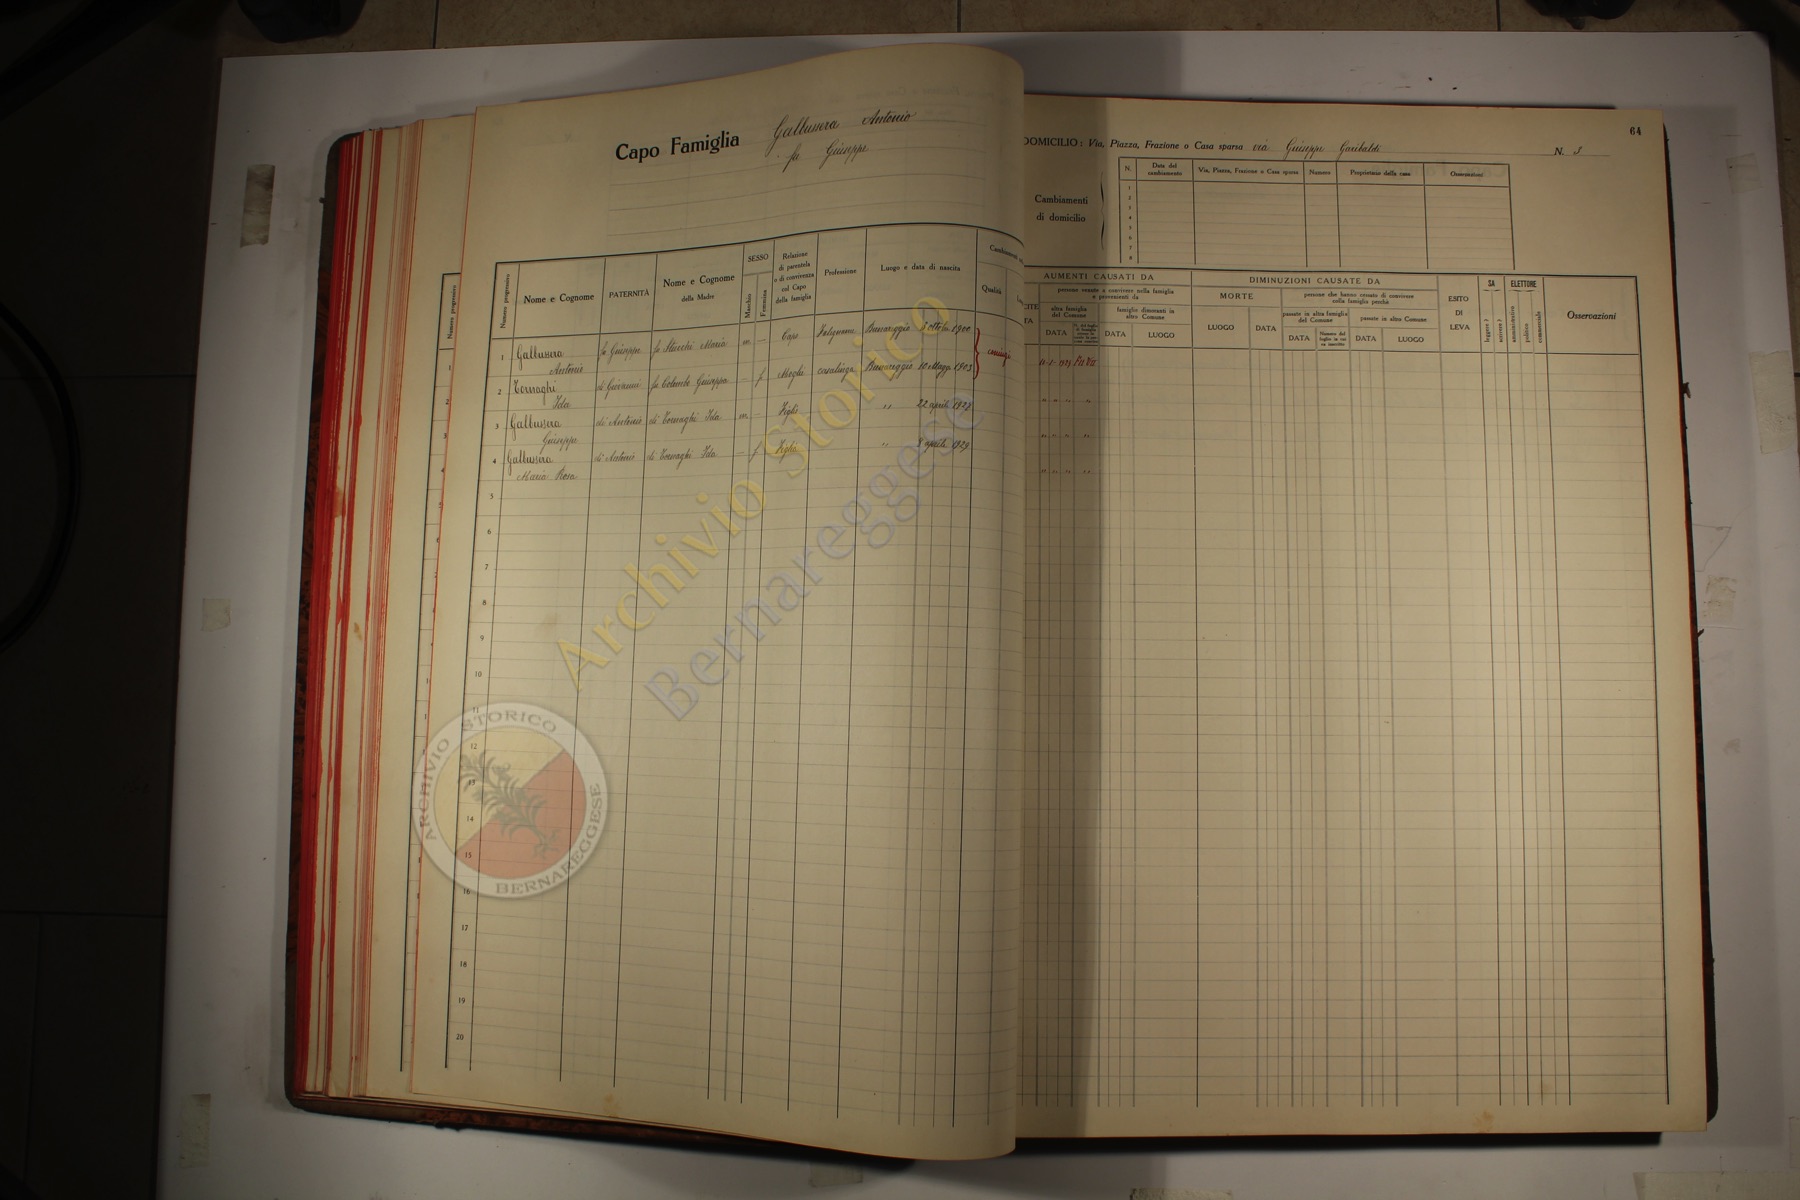 Capo Famiglia Galbusera Antonio
fu Giuseppe
64
DOMICILIO: Via, Piazza, Frazione o Casa sparsa via Giuseppe Garibaldi N. 3
Cambiamenti di domicilio
N. Data del cambiamento Via, Piazza, Frazione o Casa sparsa Numero Proprietario della casa Osservazioni
1
2
3
4
5
6
7
8
Numero progressivo Nome e Cognome PATERNITÀ Nome e Cognome della Madre SESSO Maschio Femmina Relazione di parentela o di convivenza col Capo della famiglia Professione Luogo e data di nascita Qualità
1 Galbusera Antonio fu Giuseppe fu Stucchi Maria m — Capo Falegname Bernareggio 3 ottobre 1900
2 Tornaghi Ida di Giovanni fu Colombo Giuseppa — f Moglie casalinga Bernareggio 10 Maggio 1903
3 Galbusera Giuseppe di Antonio di Tornaghi Ida m — Figlio " 22 aprile 1927
4 Galbusera Maria Rosa di Antonio di Tornaghi Ida — f Figlia " 8 aprile 1929
5
6
7
8
9
10
11
12
13
14
15
16
17
18
19
20
AUMENTI CAUSATI DA
persone venute a convivere nella famiglia e provenienti da
altra famiglia del Comune
famiglie dimoranti in altro Comune
DATA DATA LUOGO
DIMINUZIONI CAUSATE DA
MORTE
LUOGO DATA
persone che hanno cessato di convivere colla famiglia perchè
passate in altra famiglia del Comune
passate in altro Comune
DATA DATA LUOGO
ESITO DI LEVA
SA
leggere? scrivere?
ELETTORE
amministrativo politico commerciale
Osservazioni
Archivio Storico
Bernareggese
ARCHIVIO STORICO
BERNAREGGESE